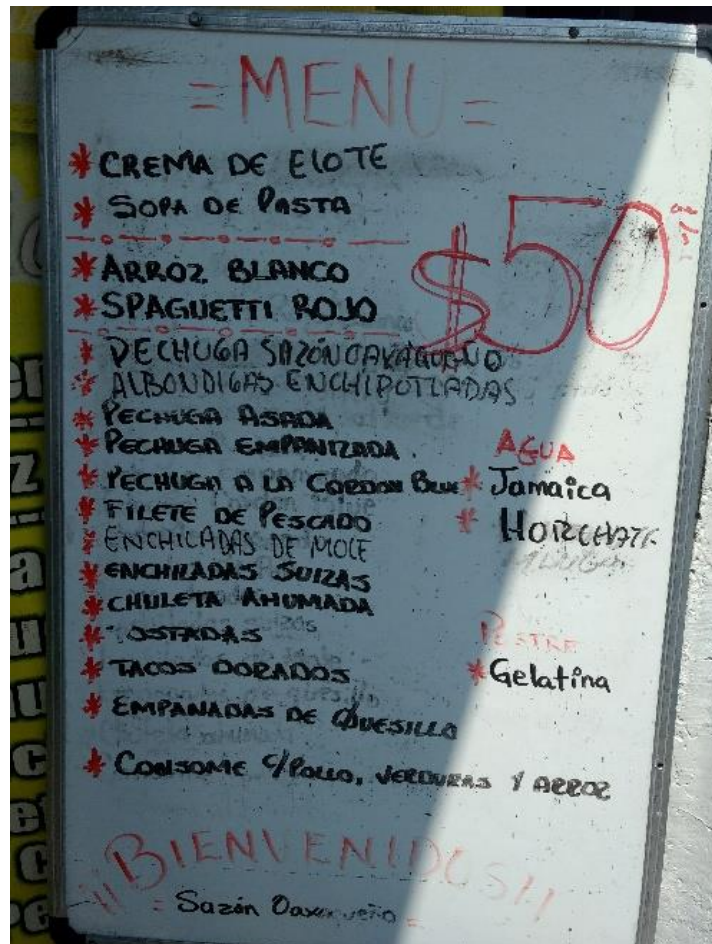 =MENU=
* CREMA DE ELOTE
* SOPA DE PASTA
* ARROZ BLANCO
* SPAGUETTI ROJO
$50
* PECHUGA SAZÓN OAXAQUEÑO
* ALBONDIGAS ENCHIPOTLADAS
* PECHUGA ASADA
* PECHUGA EMPANIZADA
* PECHUGA A LA CORDON BLUE
* FILETE DE PESCADO
* ENCHILADAS DE MOLE
* ENCHILADAS SUIZAS
* CHULETA AHUMADA
* TOSTADAS
* TACOS DORADOS
* EMPANADAS DE QUESILLO
* CONSOME C/POLLO, VERDURAS Y ARROZ
AGUA
* Jamaica
* HORCHATA
POSTRE
* Gelatina
¡¡BIENVENIDOS!!
= Sazón Oaxaqueño =